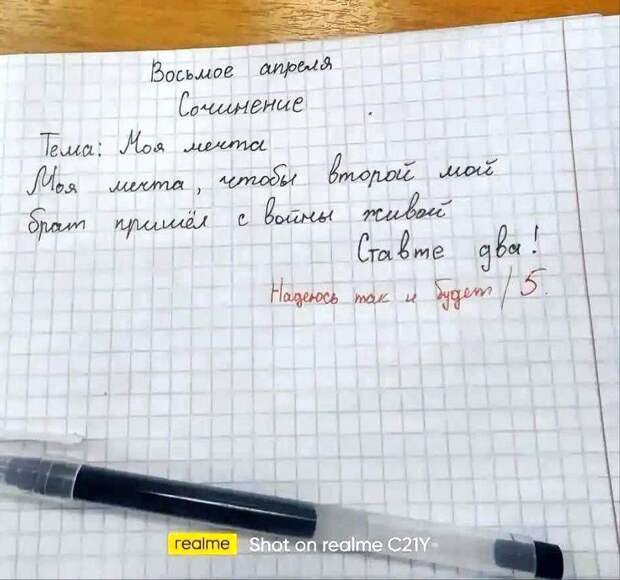 Восьмое апреля
Сочинение
Тема: Моя мечта
Моя мечта, чтобы второй мой
брат пришёл с войны живой
Ставте два!
Надеюсь так и будет / 5.
realme Shot on realme C21Y